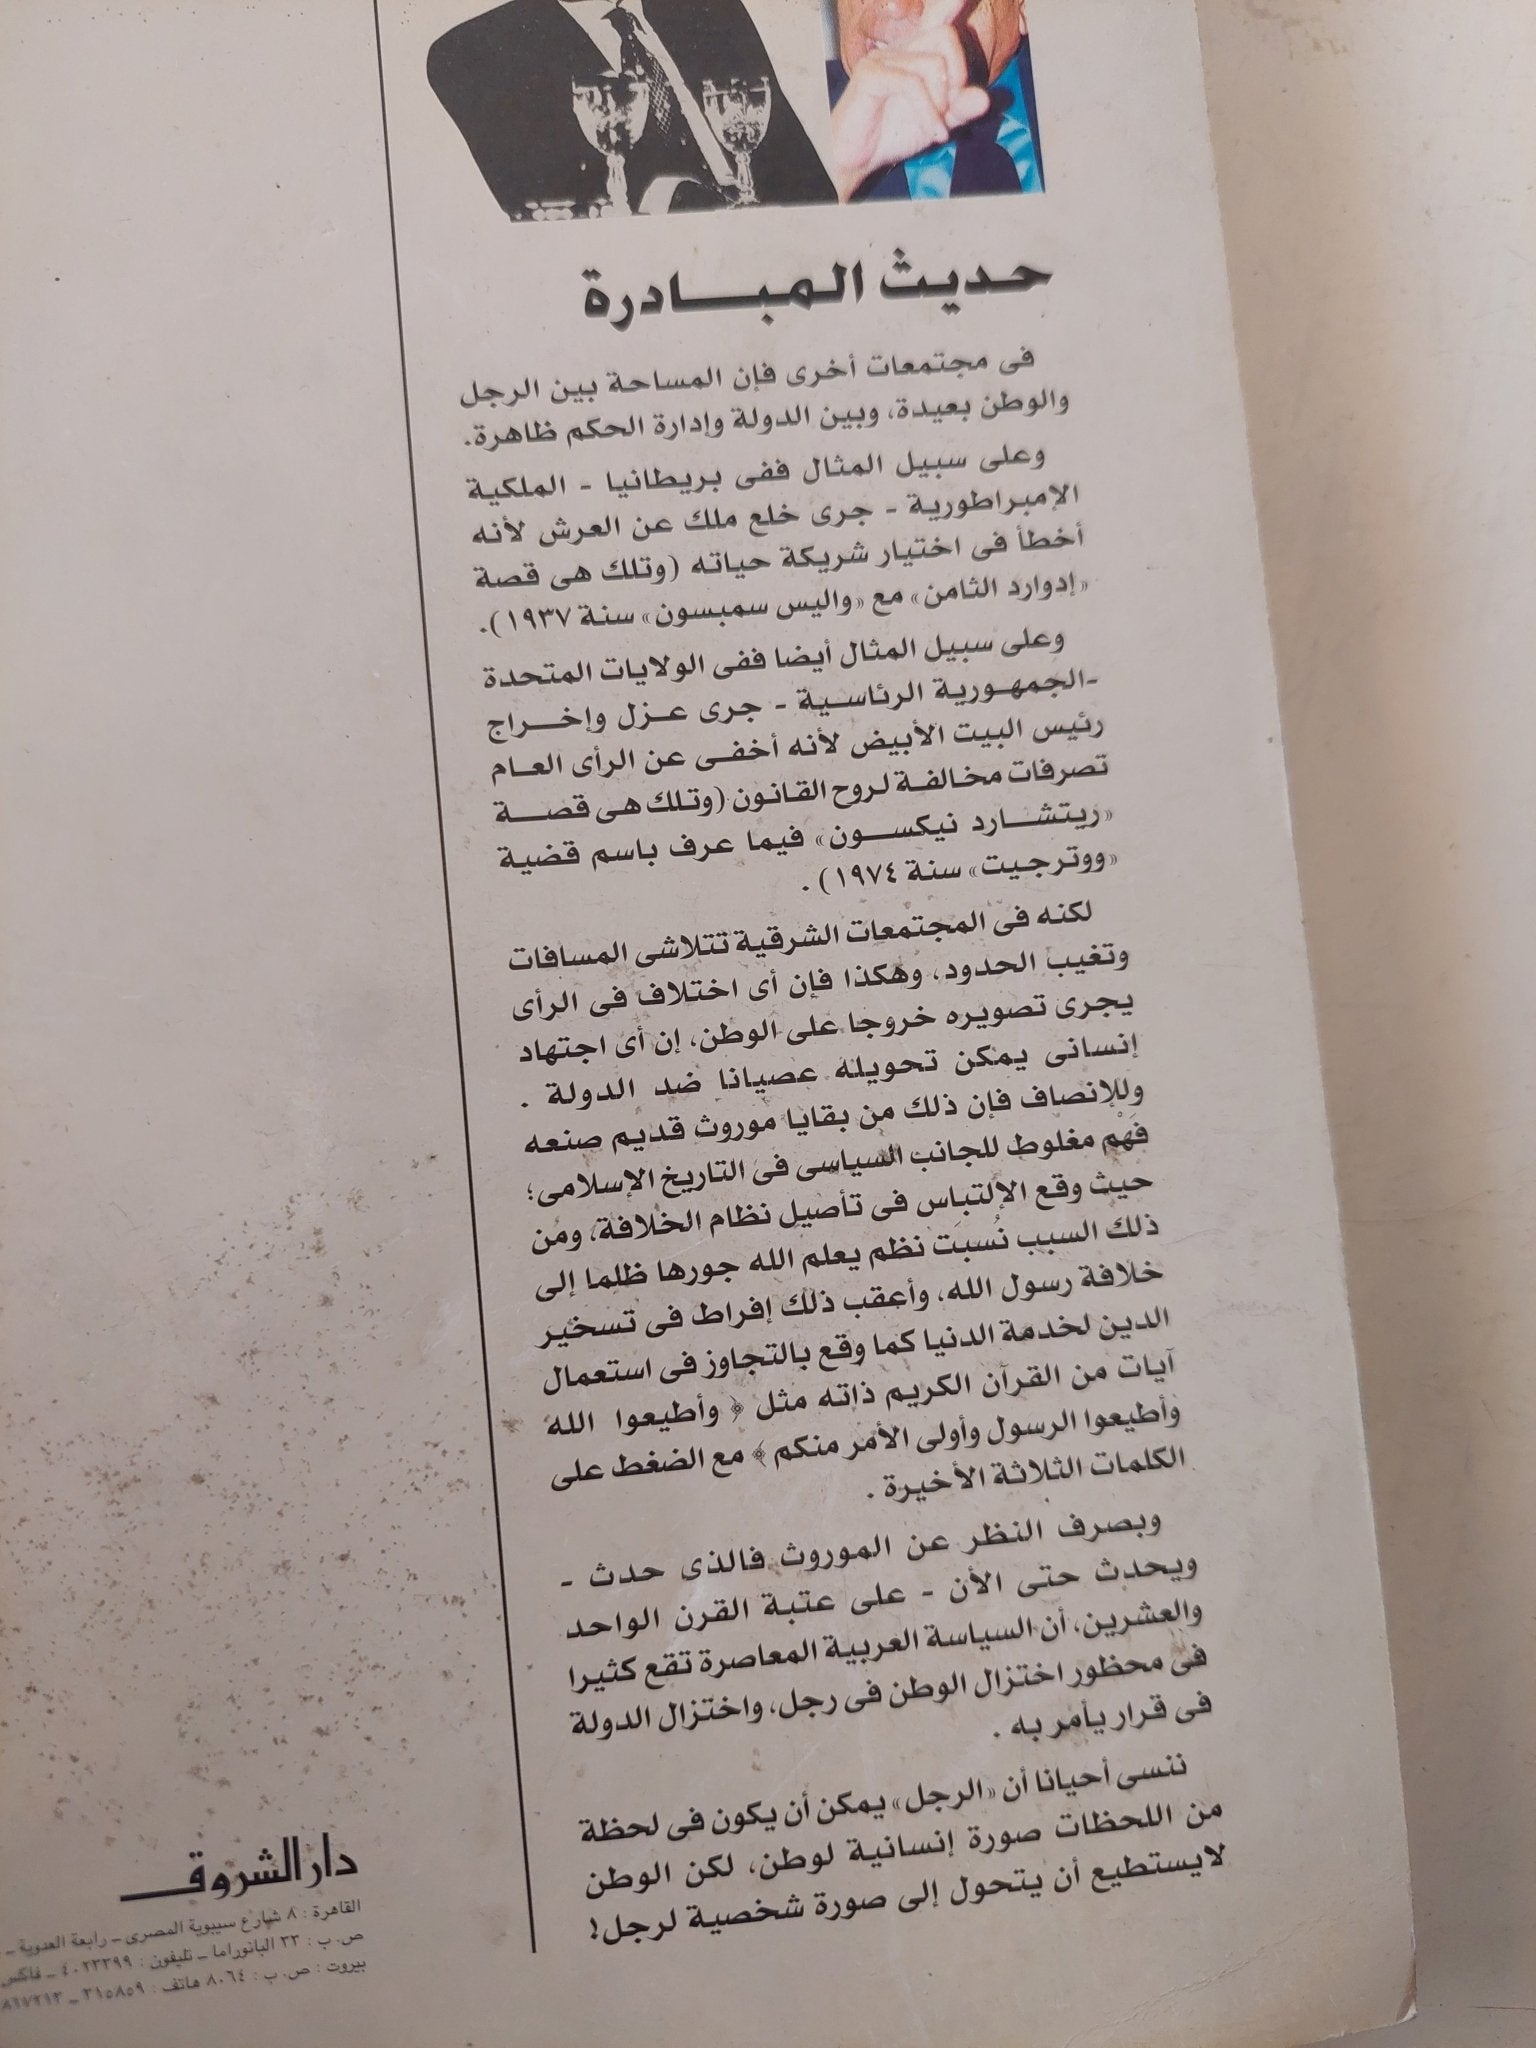 حديث المبادرة
فى مجتمعات أخرى فإن المساحة بين الرجل
والوطن بعيدة، وبين الدولة وإدارة الحكم ظاهرة.
وعلى سبيل المثال ففى بريطانيا - الملكية
الإمبراطورية - جرى خلع ملك عن العرش لأنه
أخطأ فى اختيار شريكة حياته (وتلك هى قصة
«إدوارد الثامن» مع «واليس سمبسون» سنة ١٩٣٧).
وعلى سبيل المثال أيضا ففى الولايات المتحدة
-الجمهورية الرئاسية - جرى عزل وإخراج
رئيس البيت الأبيض لأنه أخفى عن الرأى العام
تصرفات مخالفة لروح القانون (وتلك هى قصة
«ريتشارد نيكسون» فيما عرف باسم قضية
«ووترجيت» سنة ١٩٧٤).
لكنه فى المجتمعات الشرقية تتلاشى المسافات
وتغيب الحدود، وهكذا فإن أى اختلاف فى الرأى
يجرى تصويره خروجا على الوطن، إن أى اجتهاد
إنسانى يمكن تحويله عصيانا ضد الدولة .
وللإنصاف فإن ذلك من بقايا موروث قديم صنعه
فَهْم مغلوط للجانب السياسى فى التاريخ الإسلامى؛
حيث وقع الإلتباس فى تأصيل نظام الخلافة، ومن
ذلك السبب نُسبَت نظم يعلم الله جورها ظلما إلى
خلافة رسول الله، وأعقب ذلك إفراط فى تسخير
الدين لخدمة الدنيا كما وقع بالتجاوز فى استعمال
آيات من القرآن الكريم ذاته مثل ﴿ وأطيعوا الله
وأطيعوا الرسول وأولى الأمر منكم ﴾ مع الضغط على
الكلمات الثلاثة الأخيرة .
وبصرف النظر عن الموروث فالذى حدث -
ويحدث حتى الأن - على عتبة القرن الواحد
والعشرين، أن السياسة العربية المعاصرة تقع كثيرا
فى محظور اختزال الوطن فى رجل، واختزال الدولة
فى قرار يأمر به .
ننسى أحيانا أن «الرجل» يمكن أن يكون فى لحظة
من اللحظات صورة إنسانية لوطن، لكن الوطن
لايستطيع أن يتحول إلى صورة شخصية لرجل!
دار الشروق
القاهرة : ٨ شارع سيبوية المصرى ــ رابعة العدوية ــ
ص. ب : ٣٣ البانوراما ــ تليفون : ٤٠٢٣٣٩٩ ــ فاكس
بيروت : ص. ب : ٨٠٦٤ هاتف : ٣١٥٨٥٩ ــ ٨١٧٢١٣